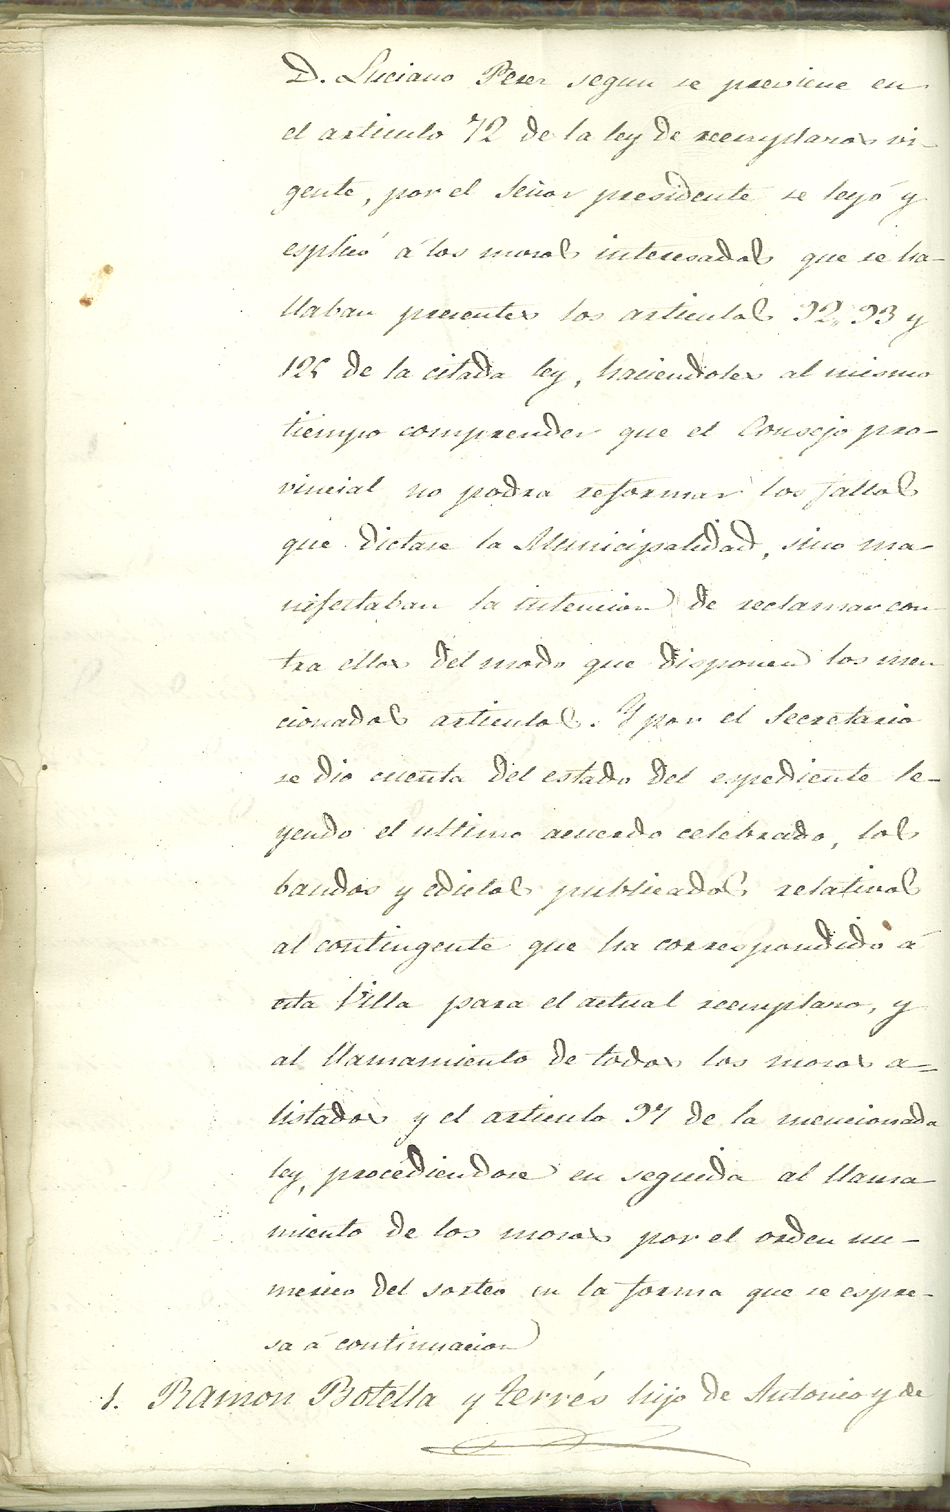 D. Luciano Perez segun se previene en
el articulo 72 de la ley de reemplazos vi-
gente, por el Señor presidente se leyó y
esplicó á los mozos interesados que se ha-
llaban presentes los articulos 92, 93 y
126 de la citada ley, haciendoles al mismo
tiempo comprender que el Consejo pro-
vincial no podra reformar los fallos
que dictase la Municipalidad, sino ma-
nifestaban la intencion de reclamar con-
tra ellos del modo que disponen los men
cionados articulos. Y por el Secretario
se dio cuenta del estado del espediente le-
yendo el ultimo acuerdo celebrado, los
bandos y edictos publicados relativos
al contingente que ha correspondido á
esta Villa para el actual reemplazo, y
al llamamiento de todos los mozos a=
listados y el articulo 97 de la mencionada
ley, procediendose en seguida al llama
miento de los mozos por el orden nu-
merico del sorteo en la forma que se espre-
sa á continuacion
1. Ramon Botella y Terrés hijo de Antonio y de